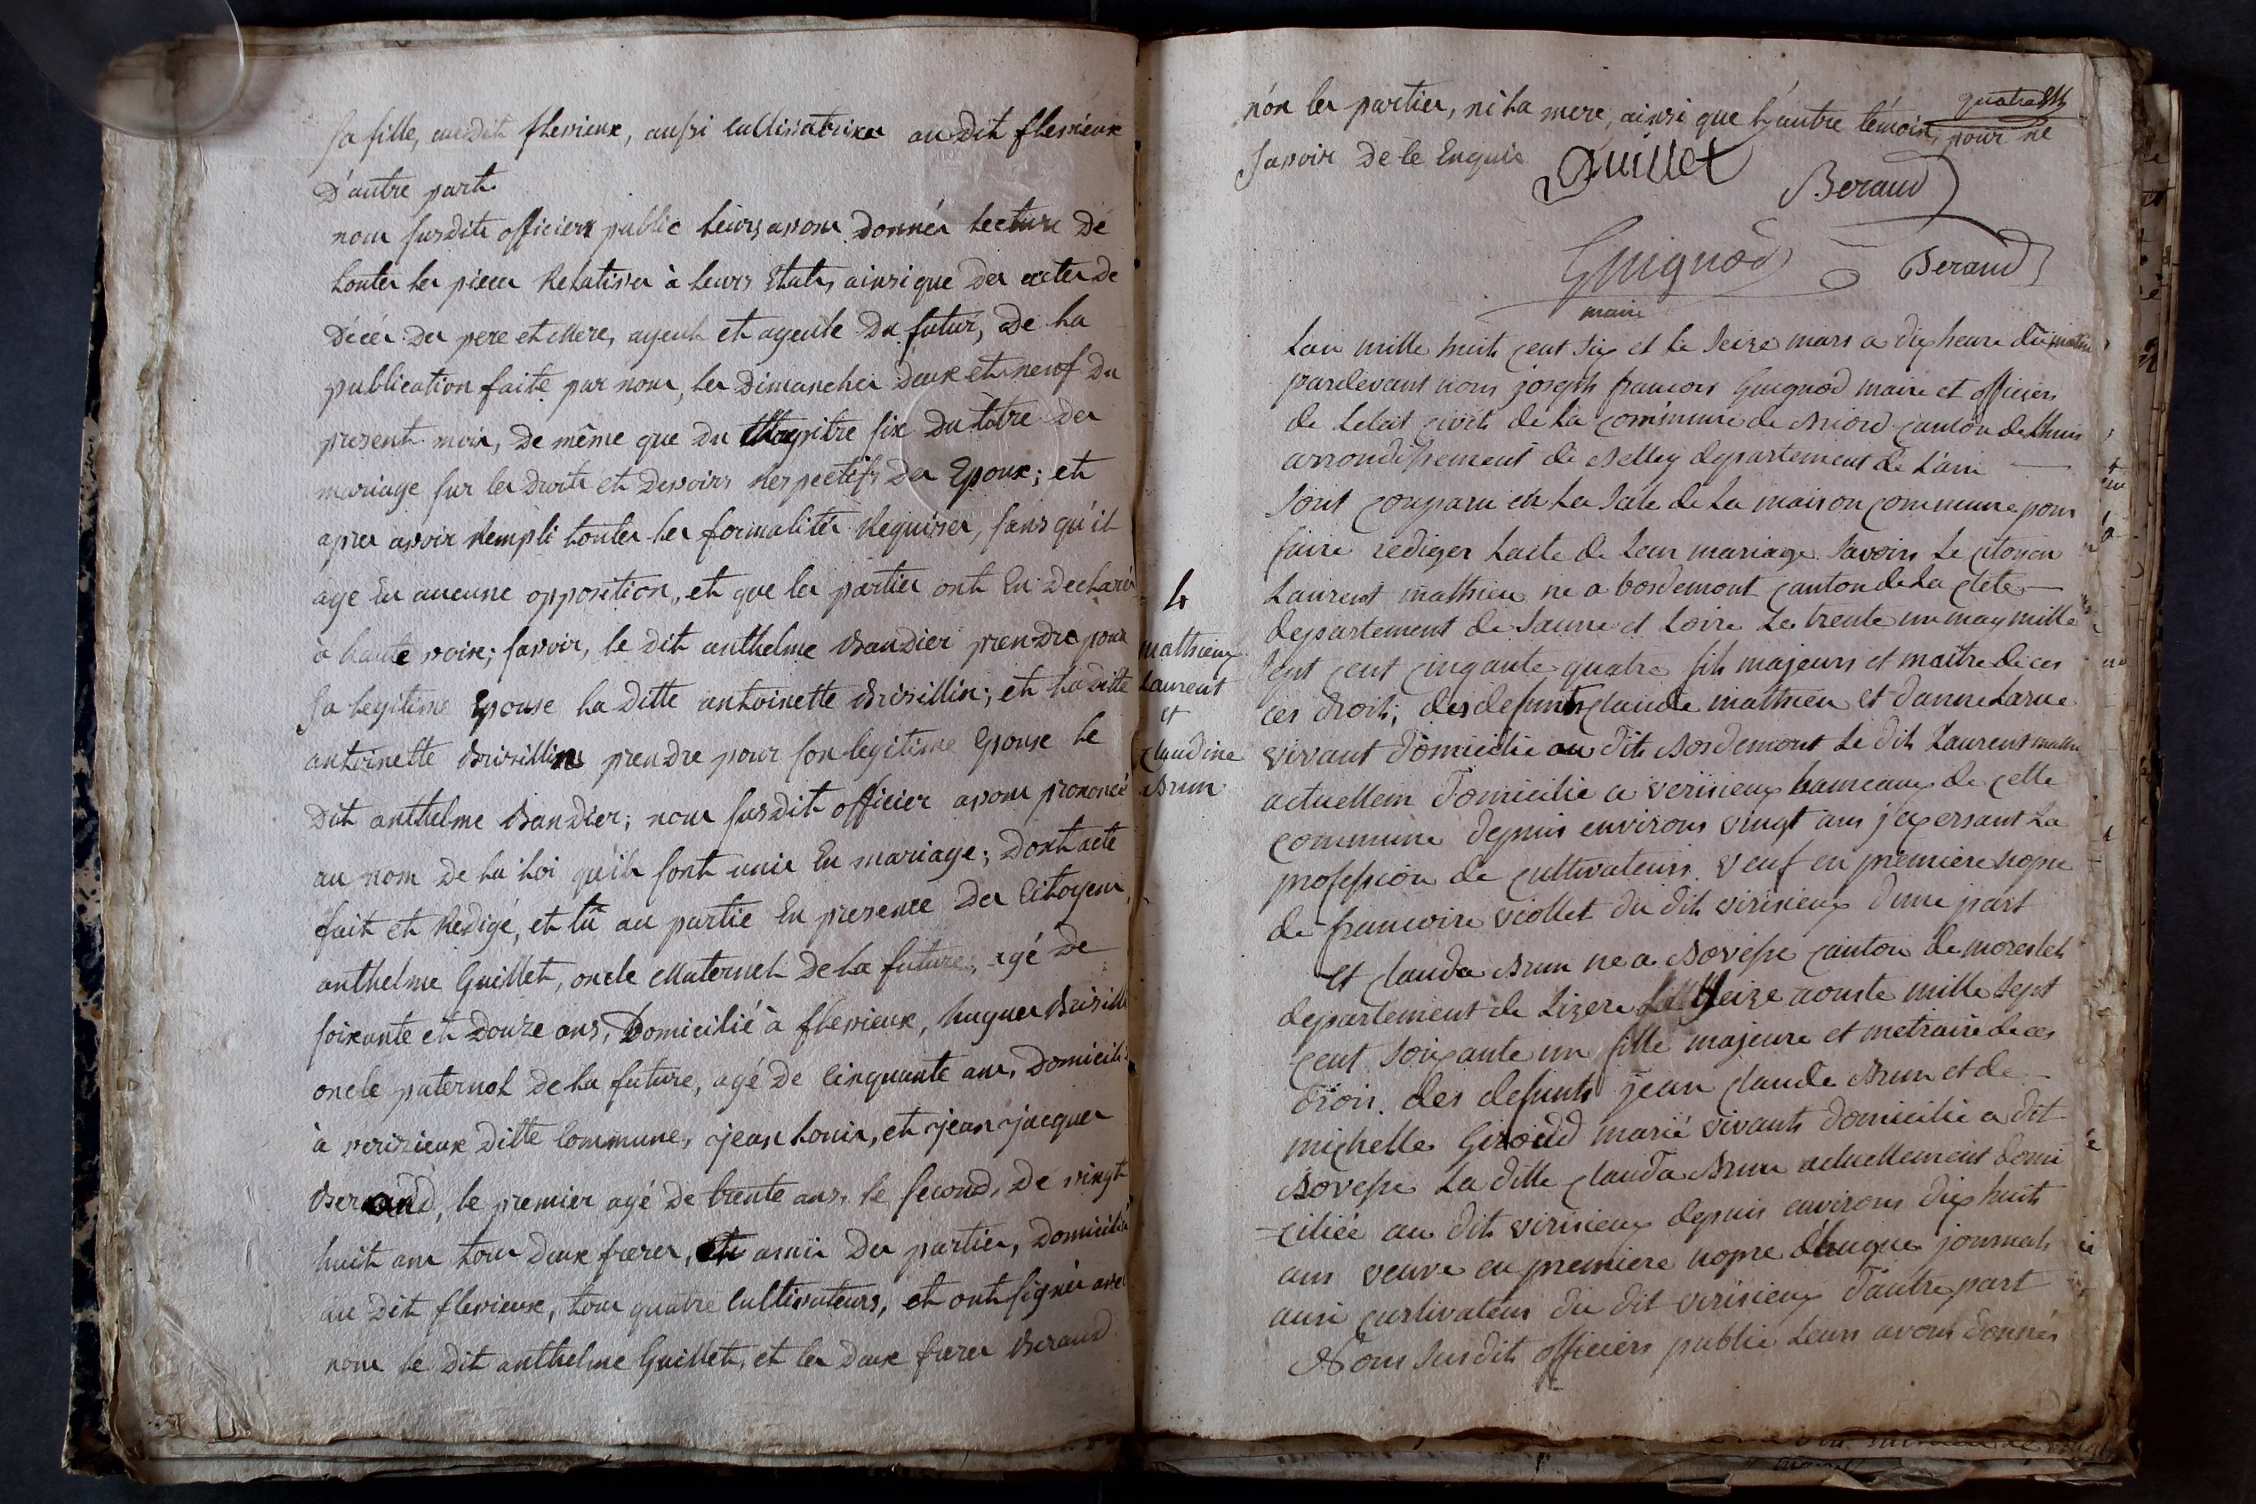 sa fille, audit flevieux, aussi cultivatrice audit flevieux
D'autre part.
nous susdit officier public leurs avons donnés lecture de
toutes les pieces Relatives à leurs Etats, ainsi que des actes de
décés des pere et Mere, ayeul et ayeule du futur, de la
publication faite par nous, les Dimanches deux et neuf du
present mois, de même que du Chapitre six du titre des
mariage sur les droits et devoirs Respectifs des Epoux; et
apres avoir Rempli toutes les formalités Requises, sans qu'il
aye Eu aucune opposition, et que les parties ont Eu Declaré
à haute voix; savoir, le dit anthelme Baudier prendre pour
sa legitime Epouse la ditte antoinette Brivillin; et la ditte
antoinette Brivillin prendre pour son legitime Epoux le
dit anthelme Baudier; nous susdit officier avons prononcé
au nom de la Loi qu'ils sont unis En mariage; Dont acte
fait et Redigé, et lû au partie En presence des Citoyens,
anthelme Guillet, oncle Maternel de la future, agé de
soixante et douze ans, Domicilié à flevieux, hugues Brivill
oncle paternel de la future, agé de Cinquante ans, Domicili
à verizieux ditte Commune, jean Louis, et jean jacques
Beraud, le premier agé de trente ans, le second, de vingt
huit ans tous deux freres, et amis des parties, domiciliés
au dit flevieux, tous quatre cultivateurs, et ont signés avec
nous le dit anthelme Guillet, et les deux freres Beraud
non les parties, ni la mere, ainsi que l'autre témoin, pour ne
quatre
savoir de ce Enquis
Guillet
Beraud
Guignod
Beraud
maire
Lan mille huit cent six et le seize mars a dix heure du matin
pardevant nous joseph francois Guignod maire et officiers
de Letat civil de la commune de Briord canton de Lhuis
arrondissement de Belley departement de L'ain
sont comparu en La sale de La maison commune pour
faire rediger Lacte de Leur mariage savoirs Le citoyen
Laurent mathieu ne a bordemont canton de La clete
departement de saune et Loire Le trente un may mille
sept cent cinqante quatre fils majeurs et maitre de ces
ces droits, des defunts claude mathieu et danne Larue
vivant domicilie au dit Bordemont Le dit Laurent mathi
actuellem domicilie a verisieux hameaux de cette
commune depuis environs vingt ans jexersant La
profession de cultivateurs veuf en premiere nopse
de francoise viollet du dit virisieux dune part
et clauda Brun ne a Bovesse canton de morestel
departement de Lizere Le seize aouste mille sept
cent soixante un fille majeure et metraire de ces
drois. des defunts jean claude Brun et de
michelle Giroud marié vivants domicilie a dit
Bovesse La ditte clauda Brun actuellement domi
-ciliée au dit virisieux depuis environs dix huit
ans veuve en premiere nopse d'hugue journals
ausi curtivateur du dit virisieux d'autre part
Nous susdit officiers public Leurs avons donnés
4
mathieux
Laurent
et
claudine
Brun